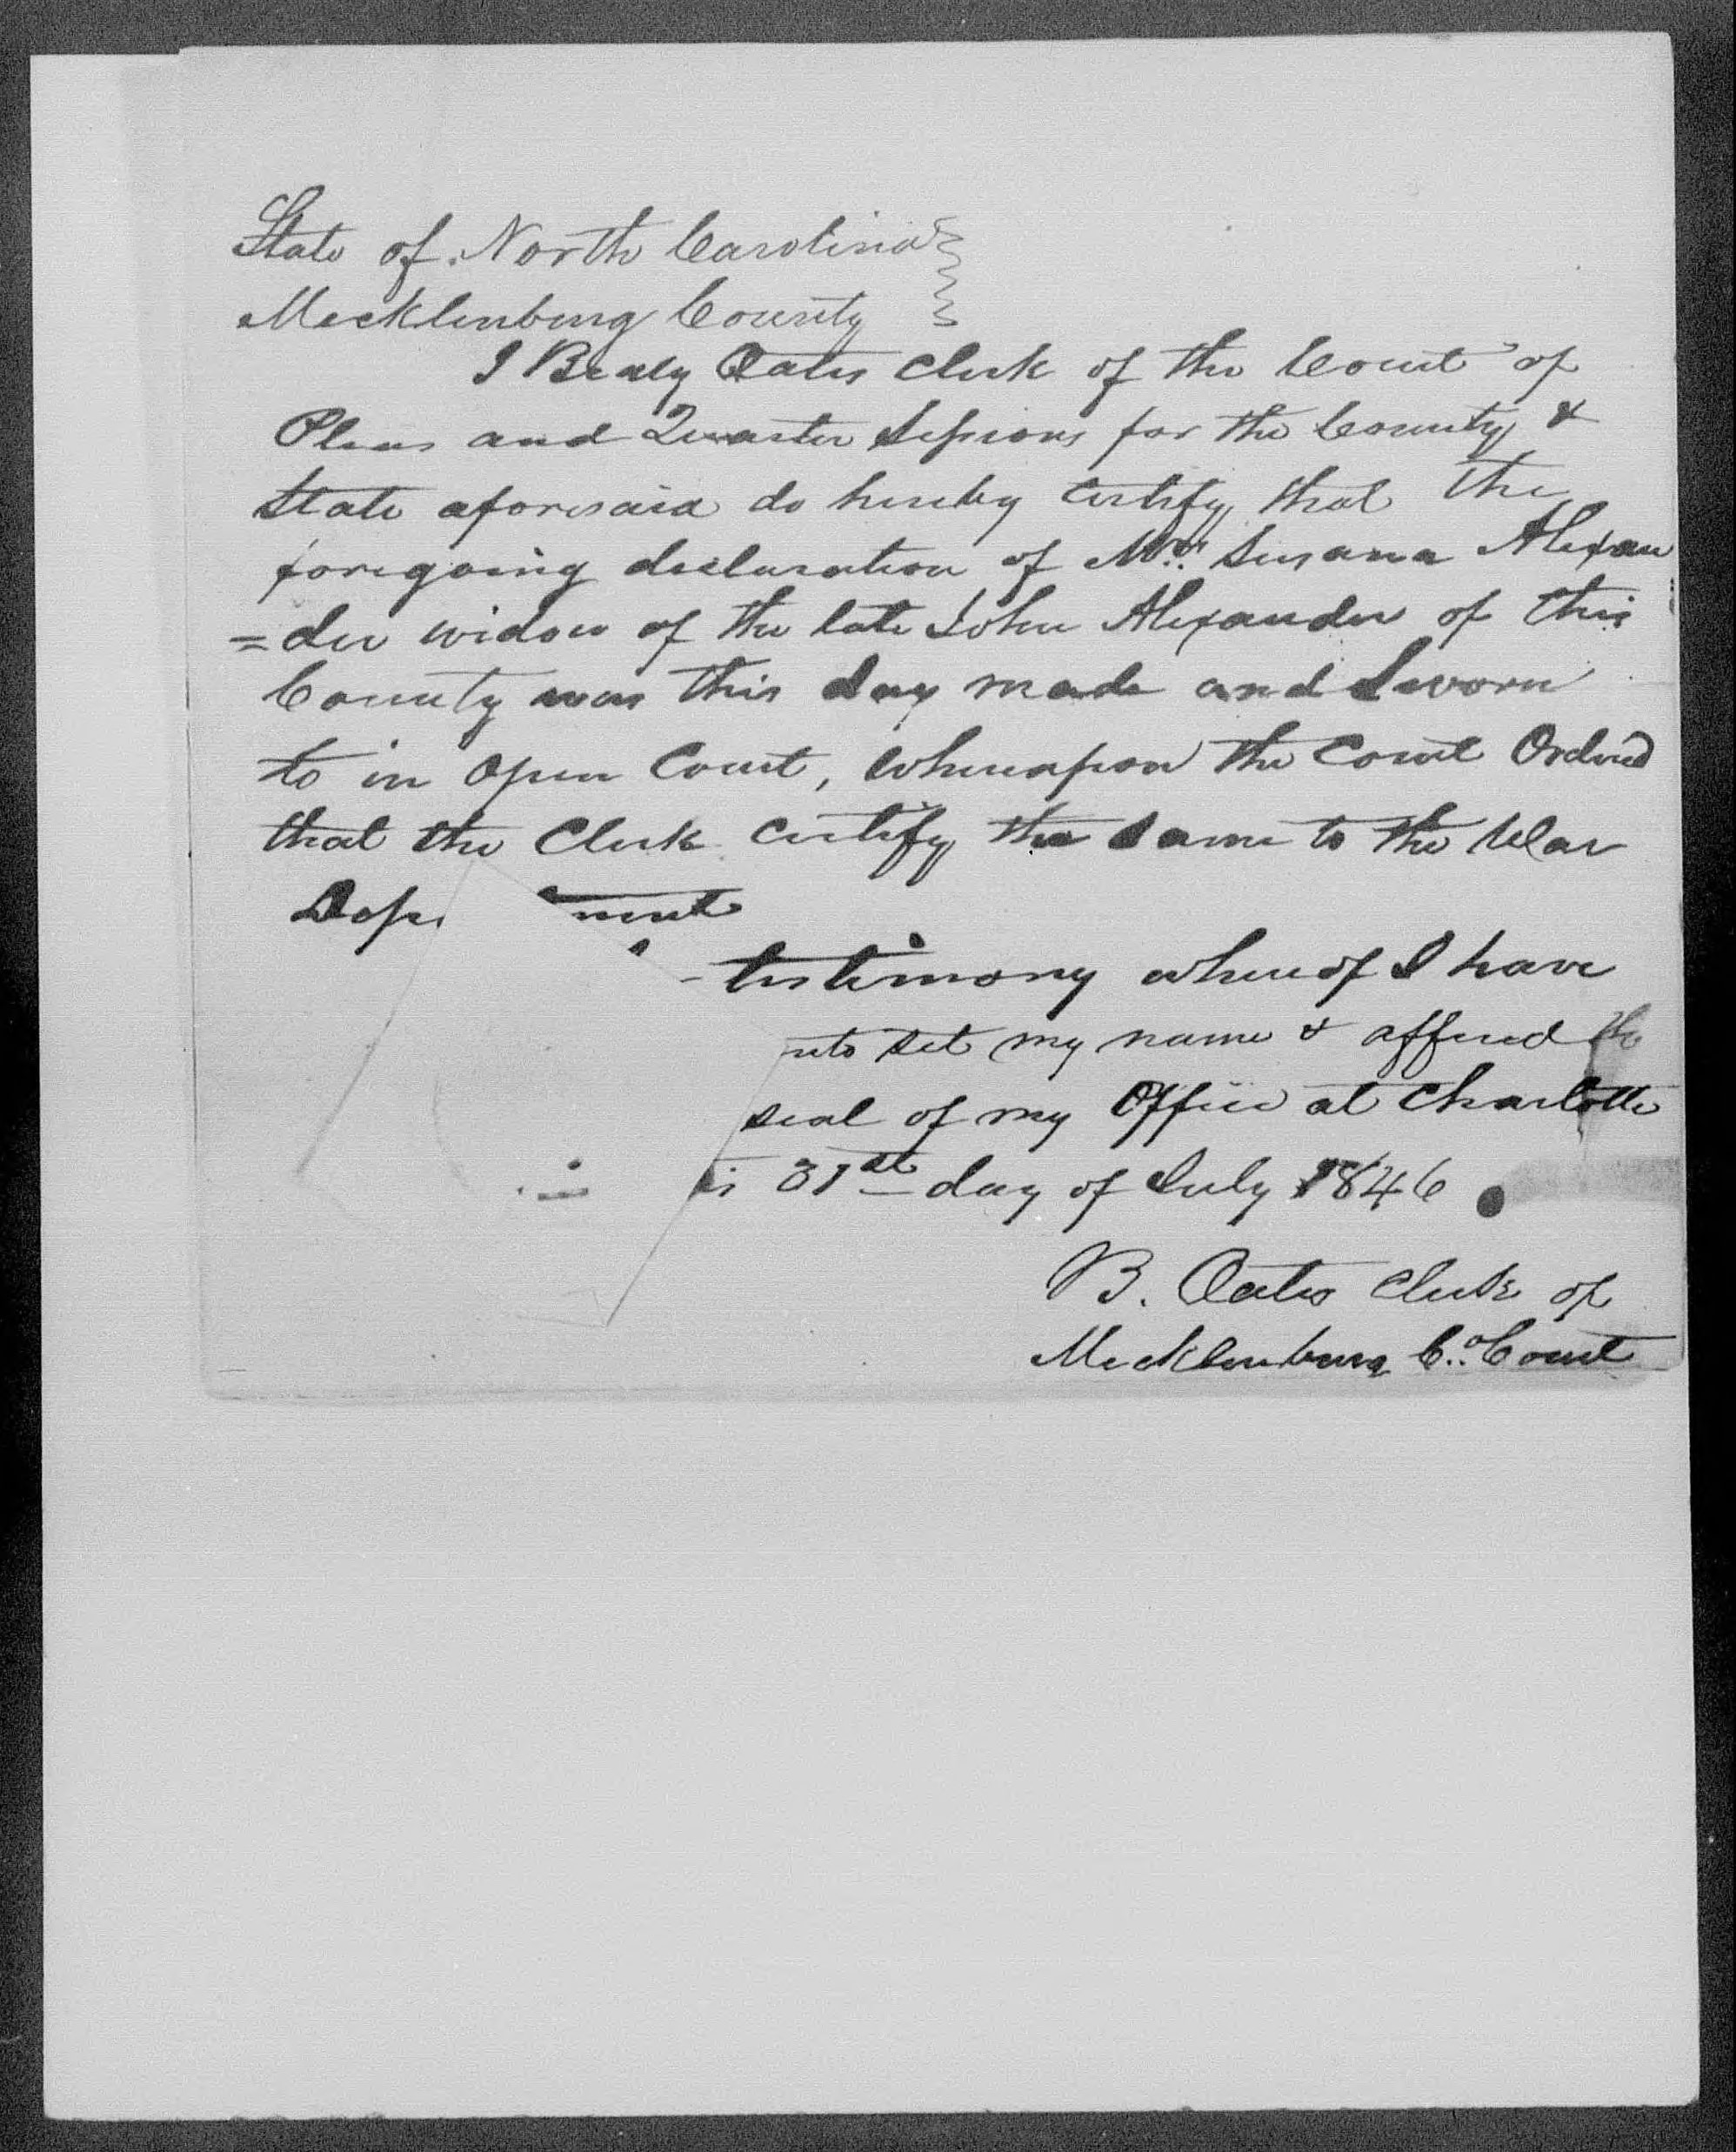 State of North Carolina
Mecklenburg County
I Braly Oates Clerk of the Court of
Pleas and Quarter Sessions for the County &
State aforesaid do hereby certify that the
foregoing declaration of Mrs. Susana Alexan
=der widow of the late John Alexander of this
County was this day made and Sworn
to in Open Court, Whereupon the Court Ordered
that the Clerk certify the same to the War
Dep ment
testimony whereof I have
nto set my name & affixed the
seal of my Office at Charlotte
is 31st day of July 1846
B. Oates Clerk of
Mecklenburg Co. Court